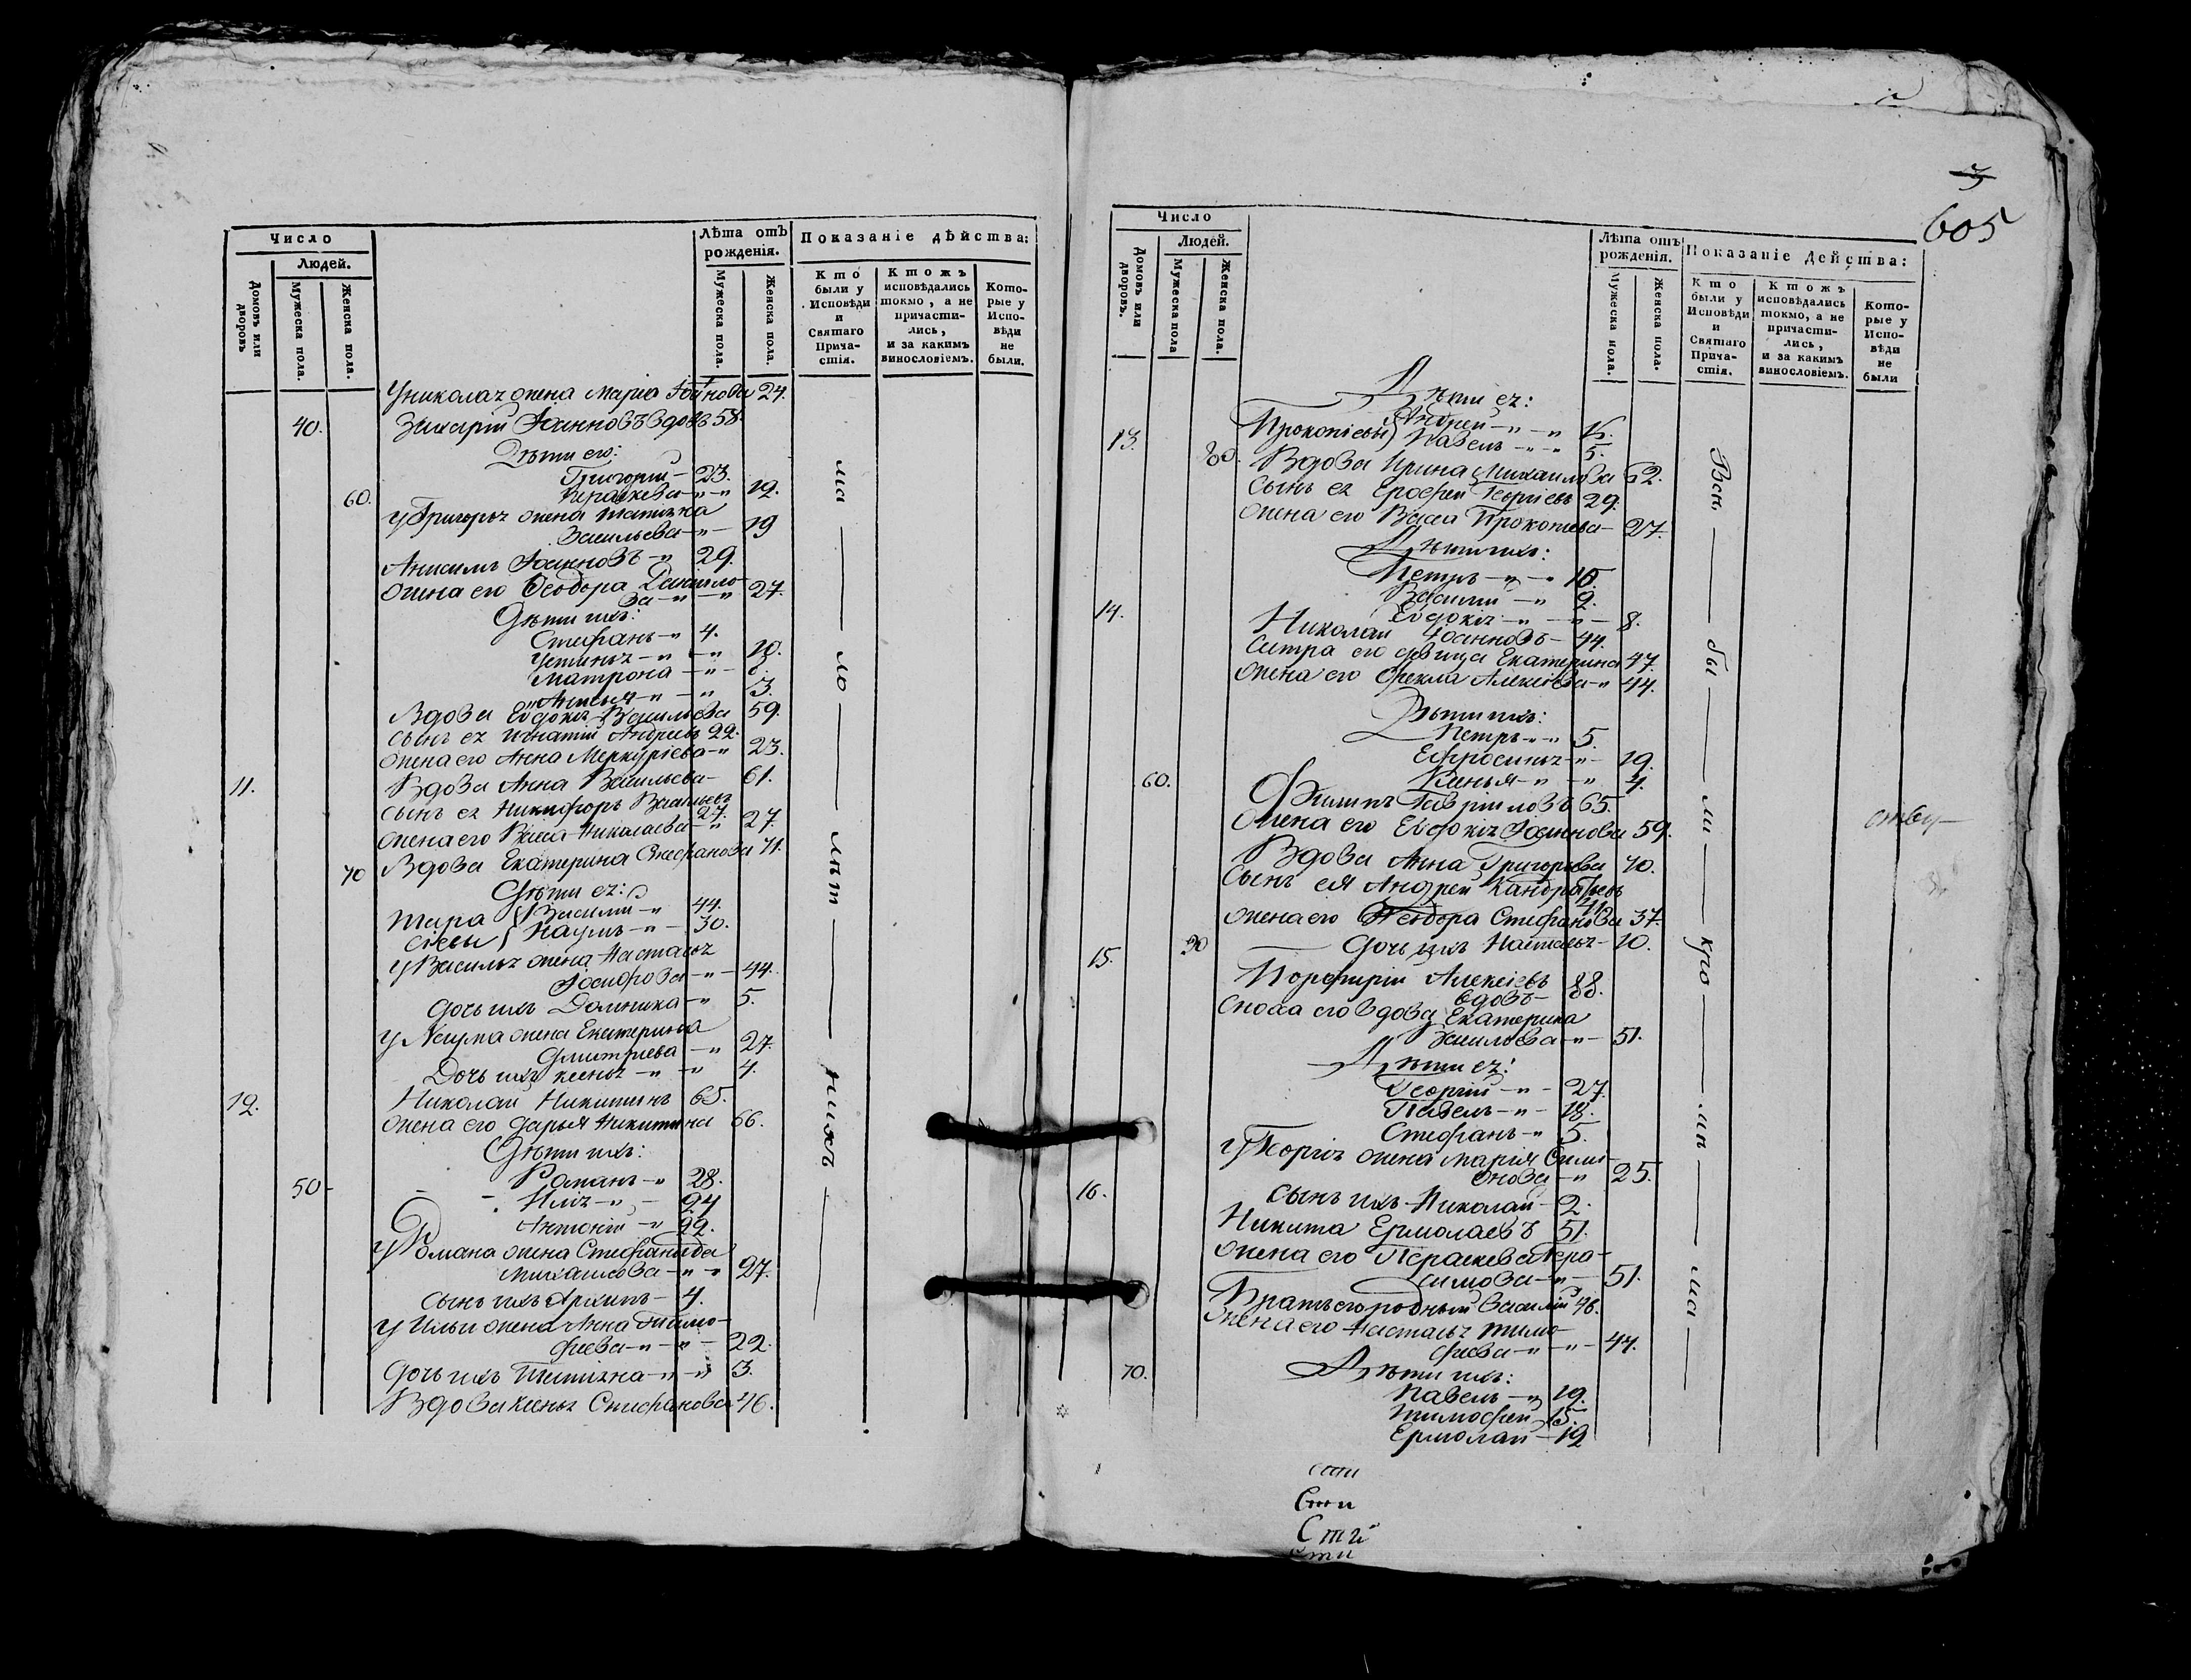 Число
Людей.
Домовъ или дворовъ
Мужеска пола.
Женска пола.
Лѣта отъ рожденія.
Мужеска пола.
Женска пола.
Показаніе дѣйства:
Кто были у Исповѣди и Святаго Прича-стія.
Ктожъ исповѣдались токмо, а не причасти-лись, и за какимъ винословіемъ.
Кото-рые у Испо-вѣди не были.
У николая жена Марія Іоаннова 24.
40. Захарій Іоанновъ вдовъ 58.
Дѣти его:
Григорій - 23.
60. Параскева - " - " 12.
У Григорья жена Татіяна
Васильева - " - 19
Анисимъ Іоанновъ - " 29.
жена его Ѳеодора Даніило-
ва - " - " 27.
Дѣти ихъ:
Стефанъ - " 4.
Устинья - " - " 10.
Матрона - " - 6.
" - " 3.
Вдова Евдокія Васильева 59.
сынъ ея Игнатій Андреевъ 22.
жена его Анна Меркуріева - " 23.
11. Вдова Анна Васильева - 61.
сынъ ея Никифоръ Васильевъ
27.
жена его Васса Николаева - " 27.
70 Вдова Екатерина Стефанова 71.
Дѣти ея:
Тара { Василій - " 44.
сіевы { Наумъ - " - 30.
У Василья жена Настасья
Іосифова - " - 44.
дочь ихъ Домника - " 5.
У Наума жена Екатерина
Дмитріева - " 27.
Дочь ихъ Ксенья - " - " 4.
12. Николай Никитинъ 65.
жена его Дарья Никитина 66.
Дѣти ихъ:
Романъ - " 28.
50 - Илія - " - 24
Антоній - " 22.
У Романа жена Стефанида
Михаилова - " - " 27.
сынъ ихъ Архипъ - 4.
У Ильи жена Анна Тимо-
феева - " - " - 22.
Дочь ихъ Татіяна - " - " 3.
Вдова Ксенья Стефанова 46.
ма — ло — лѣт — нихъ —
3
605
Число
Людей.
Домовъ или дворовъ.
Мужеска пола
Женска пола.
Лѣта отъ рожденія.
Мужеска пола.
Женска пола.
Показаніе дѣйства:
Кто были у Исповѣди и Святаго Прича-стія.
Ктожъ исповѣдались токмо, а не причасти-лись, и за какимъ винословіемъ.
Кото-рые у Испо-вѣди не были
Дѣти ея:
Андрей - " - "
Прокопіевы } Павелъ - " - " 5.
13. 80. Вдова Ирина Михаилова 62.
Сынъ ея Ерофей Георгіевъ 29.
жена его Васса Прокопіева - 27.
Дѣти ихъ:
Петръ - " - " 10.
Василій - " 2.
Евдокія - " - " - 8.
14. Николай Іоанновъ - 44.
Сестра его дѣвица Екатерина 47.
жена его Ѳекла Алексіева - " 44.
Дѣти ихъ:
Петръ - " - " 5.
Ефросинья - " - 19.
Ксенья - " - " 4.
60. Филипъ Гавріиловъ 65.
Жена его Евдокія Іоаннова 59.
Вдова Анна Григорьева 70.
Сынъ ея Андрей Кандратьевъ
41
жена его Ѳеодора Стефанова 37.
90 дочь ихъ Настасья - 10.
15. Порфирій Алексіевъ
вдовъ - 88.
Сноха его вдова Екатерина
Васильева - " - 51.
Дѣти ея:
Георгій - " - 27.
Павелъ - " - 18.
Стефанъ - " 5.
У Георгія жена Марія Симе-
онова - " 25.
сынъ ихъ Николай - 2.
16. Никита Ермолаевъ 51.
жена его Параскева Гера-
симова - " - 51.
Братъ его родный Василій 46.
жена его Настасья Тимо-
феева - " - " - 44.
70. Дѣти ихъ:
Павелъ - " 19.
Тимофей 15.
Ермолай - 12
Всѣ — бы — ли — кро — мѣ — ма —
Сти
Сти
Сти